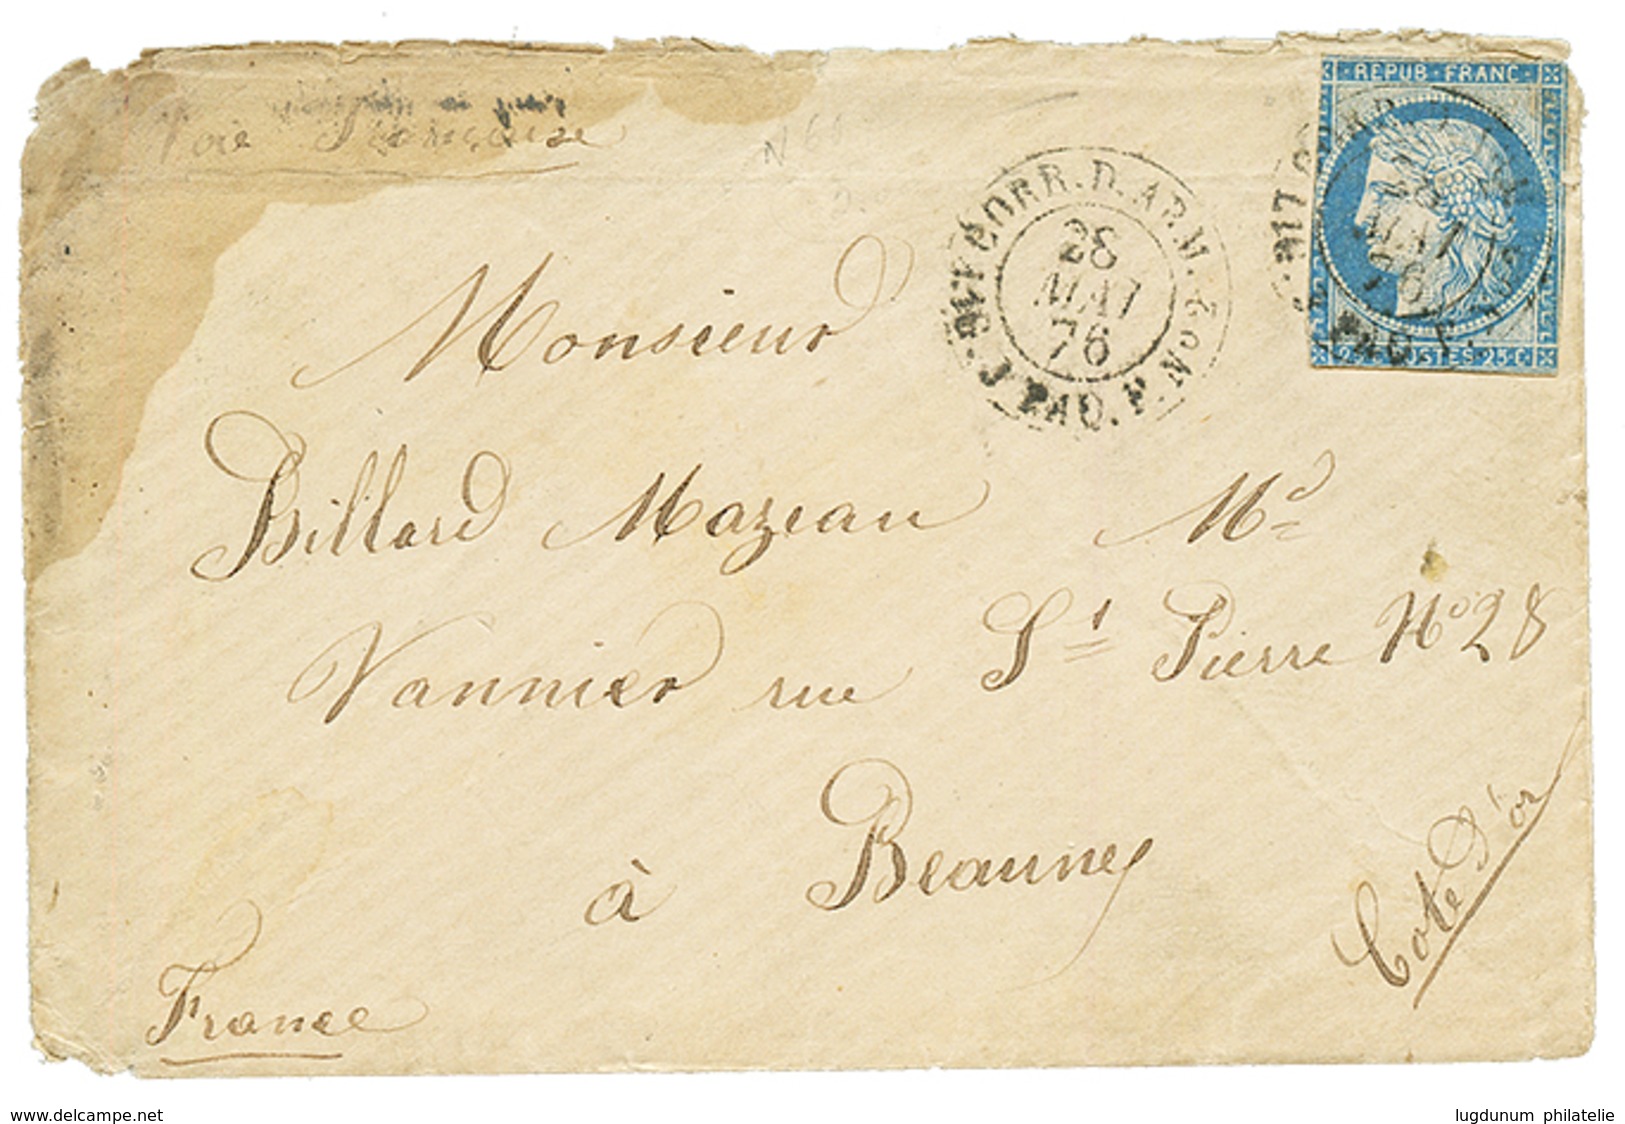 Voie Française
REPUB FRANC
POSTES 25 C.
CORR. D. ARM.
PAQ. F. No 2
28
MAI
76
28
MAI
76
PAQ. F.
Monsieur
Billard Mazeau Md
Vannier rue St Pierre No 28
à Beaune
Cote d'or
France
www.delcampe.net
lugdunum philatelie